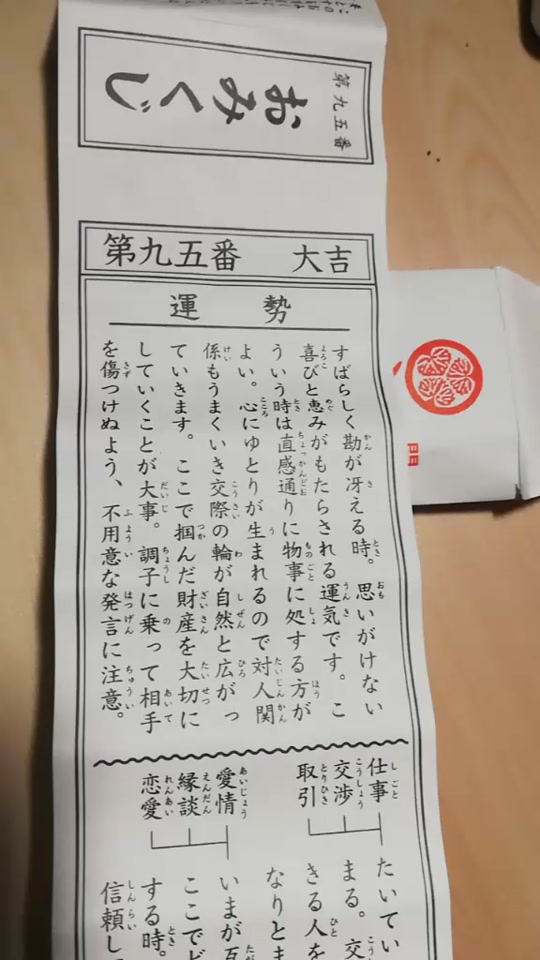 第九五番
おみくじ
第九五番 大吉
運勢
すばらしく勘が冴える時。思いがけない
喜びと恵みがもたらされる運気です。こ
ういう時は直感通りに物事に処する方が
よい。心にゆとりが生まれるので対人関
係もうまくいき交際の輪が自然と広がっ
ていきます。ここで掴んだ財産を大切に
していくことが大事。調子に乗って相手
を傷つけぬよう、不用意な発言に注意。
仕事
交渉
取引
たいてい
まる。交
きる人を
なりとま
愛情
縁談
恋愛
いまが互
ここでど
する時。
信頼し